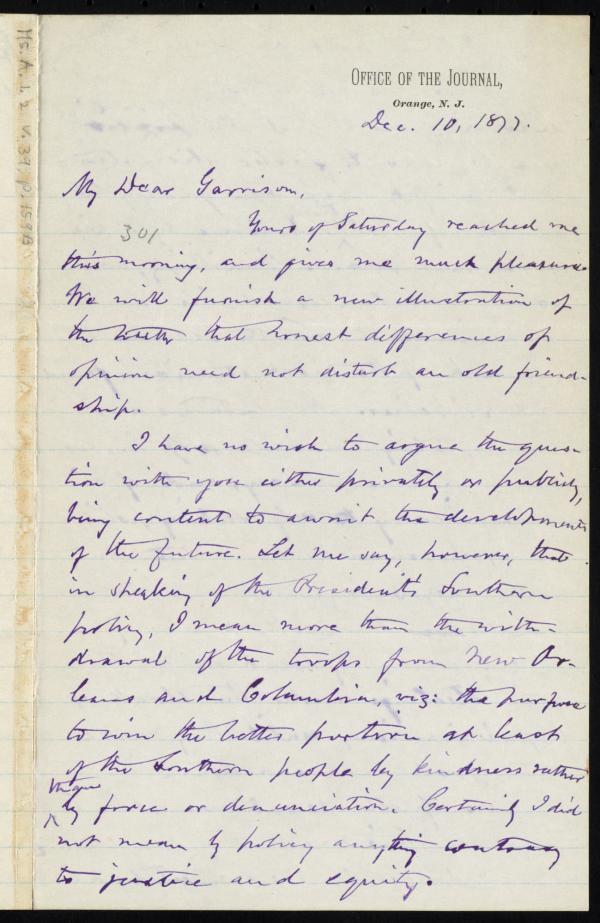 Ms. A. 1. 2 v. 39, p. 159B
OFFICE OF THE JOURNAL,
Orange, N. J.
Dec. 10, 1877.
My Dear Garrison,
301
Yours of Saturday reached me
this morning, and gives me much pleasure.
We will furnish a new illustration of
the truth that honest differences of
opinion need not disturb an old friend-
ship.
I have no wish to argue the ques-
tion with you either privately or publicly,
being content to await the developments
of the future. Let me say, however, that
in speaking of the President's Southern
policy, I mean more than the with-
drawal of the troops from New Or-
leans and Columbia, viz: the purpose
to win the better portion at least
of the Southern people by kindness rather
than
by force or denunciation. Certainly I did
not mean by policy anything contrary
to justice and equity.